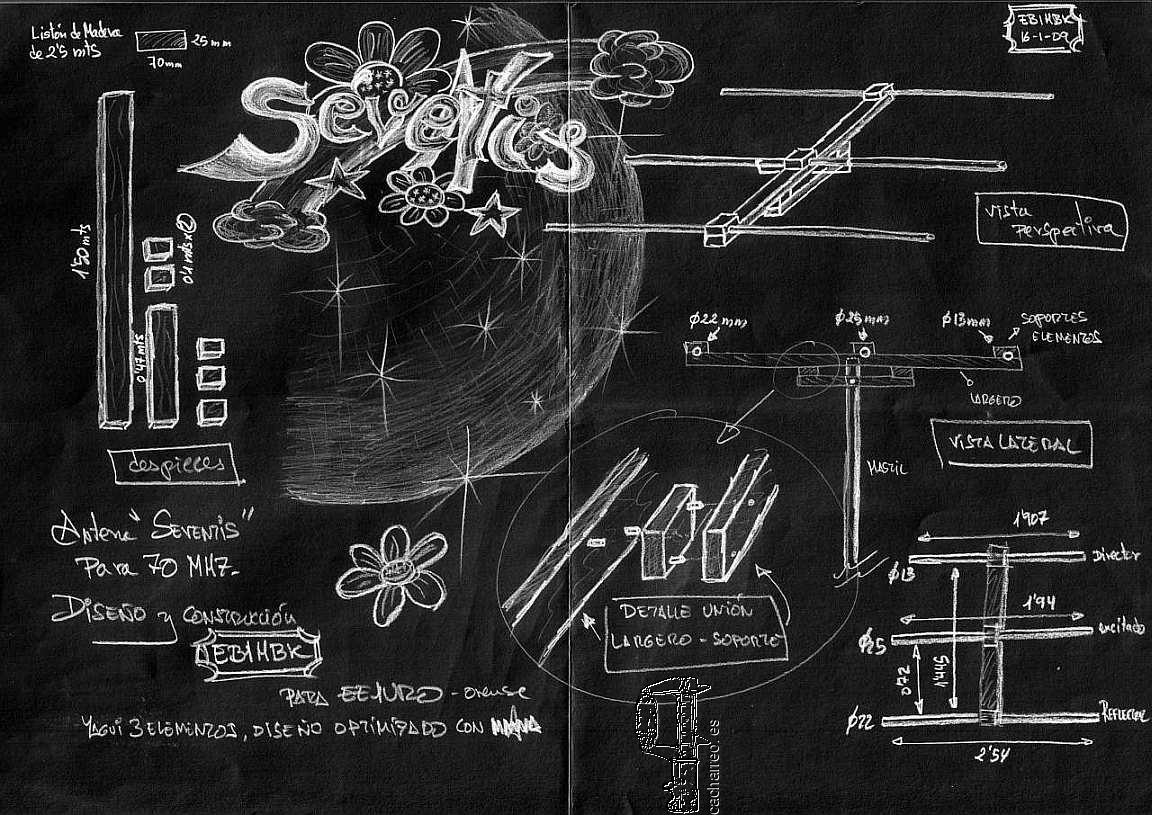 Listón de Madera
de 2'5 mts
25 mm
70mm
EB1HBK
16-1-09
Seventis
1'50 mts
0'1 mts x2
0'47 mts
despieces
Antena "Seventis"
Para 70 MHZ-
Diseño y construcción
EB1HBK
PARA EE1URO - orense
YAGUI 3 ELEMENTOS, DISEÑO OPTIMIZADO CON MMANA
vista
perspectiva
Ø22 mm
Ø25 mm
Ø13 mm
SOPORTES
ELEMENTOS
LARGERO
VISTA LATERAL
MASTIL
DETALLE UNIÓN
LARGERO - SOPORTE
1'907
Director
Ø13
1'94
excitado
Ø25
0'72
1'445
Ø22
Reflector
2'54
cacharreo.es